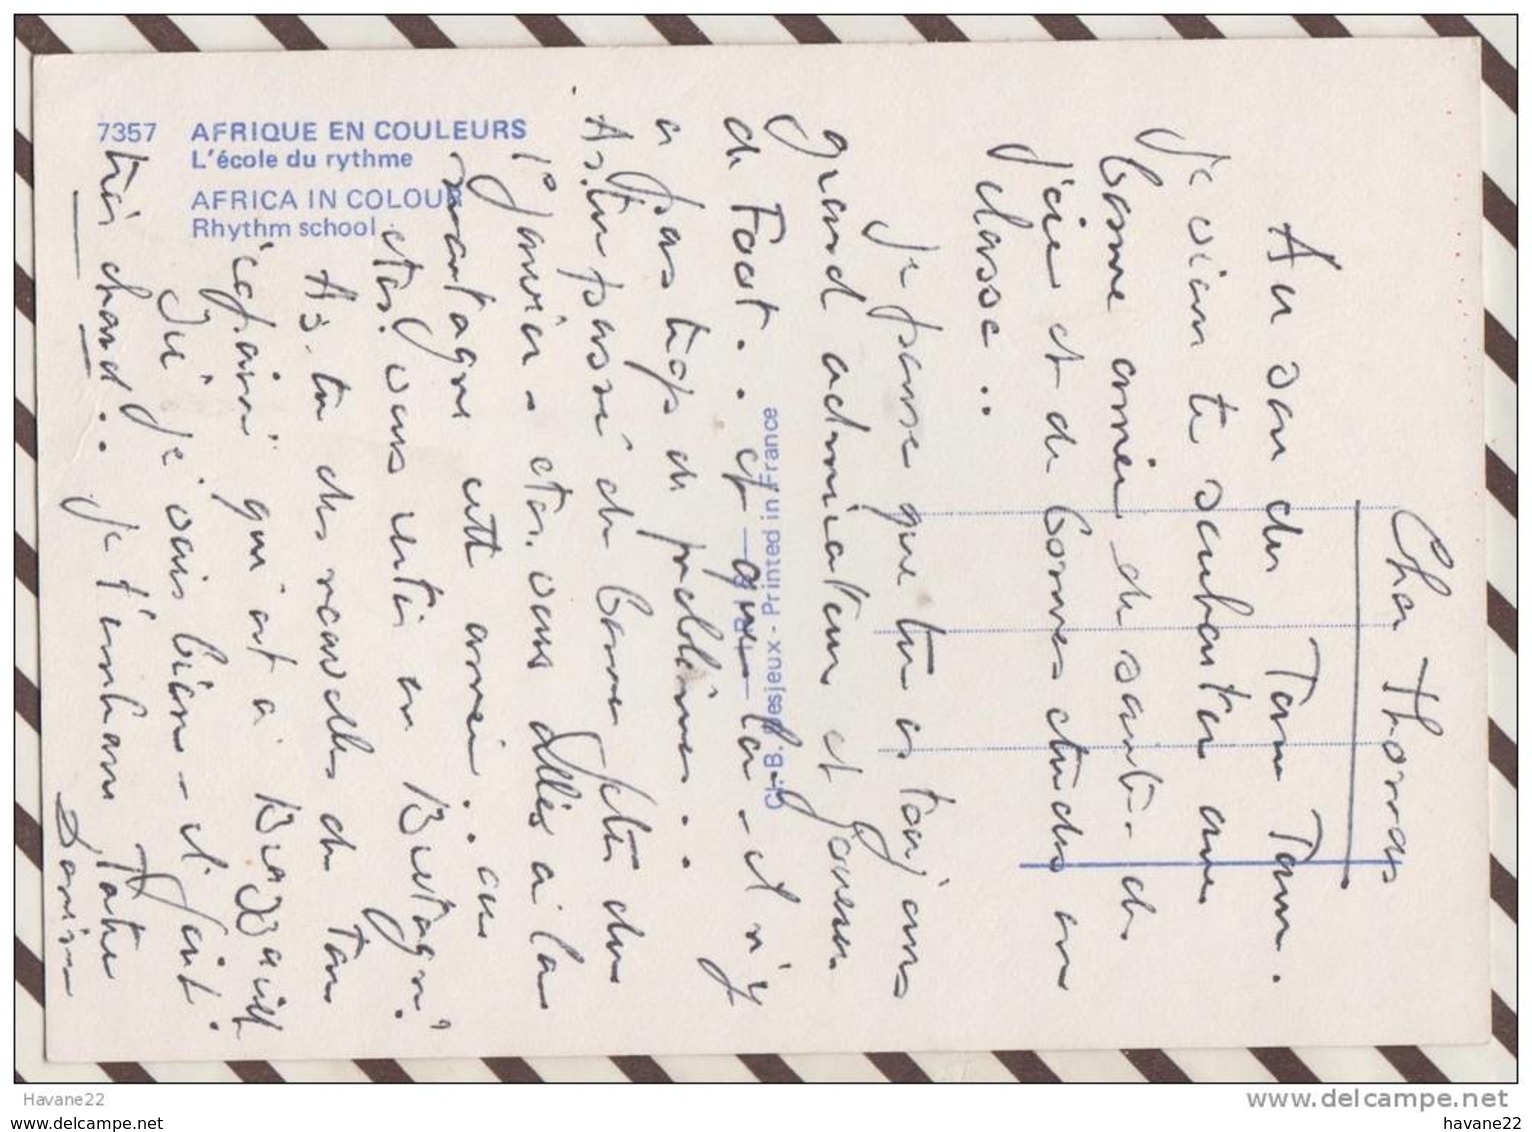 7357 AFRIQUE EN COULEURS
L'école du rythme
AFRICA IN COLOUR
Rhythm school
Cl. B. Desjeux - Printed in France
Cher Thomas
Au son du Tam Tam.
Je viens te souhaiter une
bonne année de santé - de
joie et de bonnes études en
classe..
Je pense que tu es toujours
grand admirateur et joueur
de Foot.. et que là - il n'y
a pas trop de problèmes..
As-tu passé de bonnes fêtes du
1° janvier - etes vous allés à la
montagne cette année.. ou
etes vous restés en Bretagne?
As-tu des nouvelles de ton
"copain" qui est à Brazzaville
Ici je vais bien - il fait
très chaud.. je t'embrasse Tatie
Havane22
www.delcampe.net
Havane22
www.delcampe.net
havane22